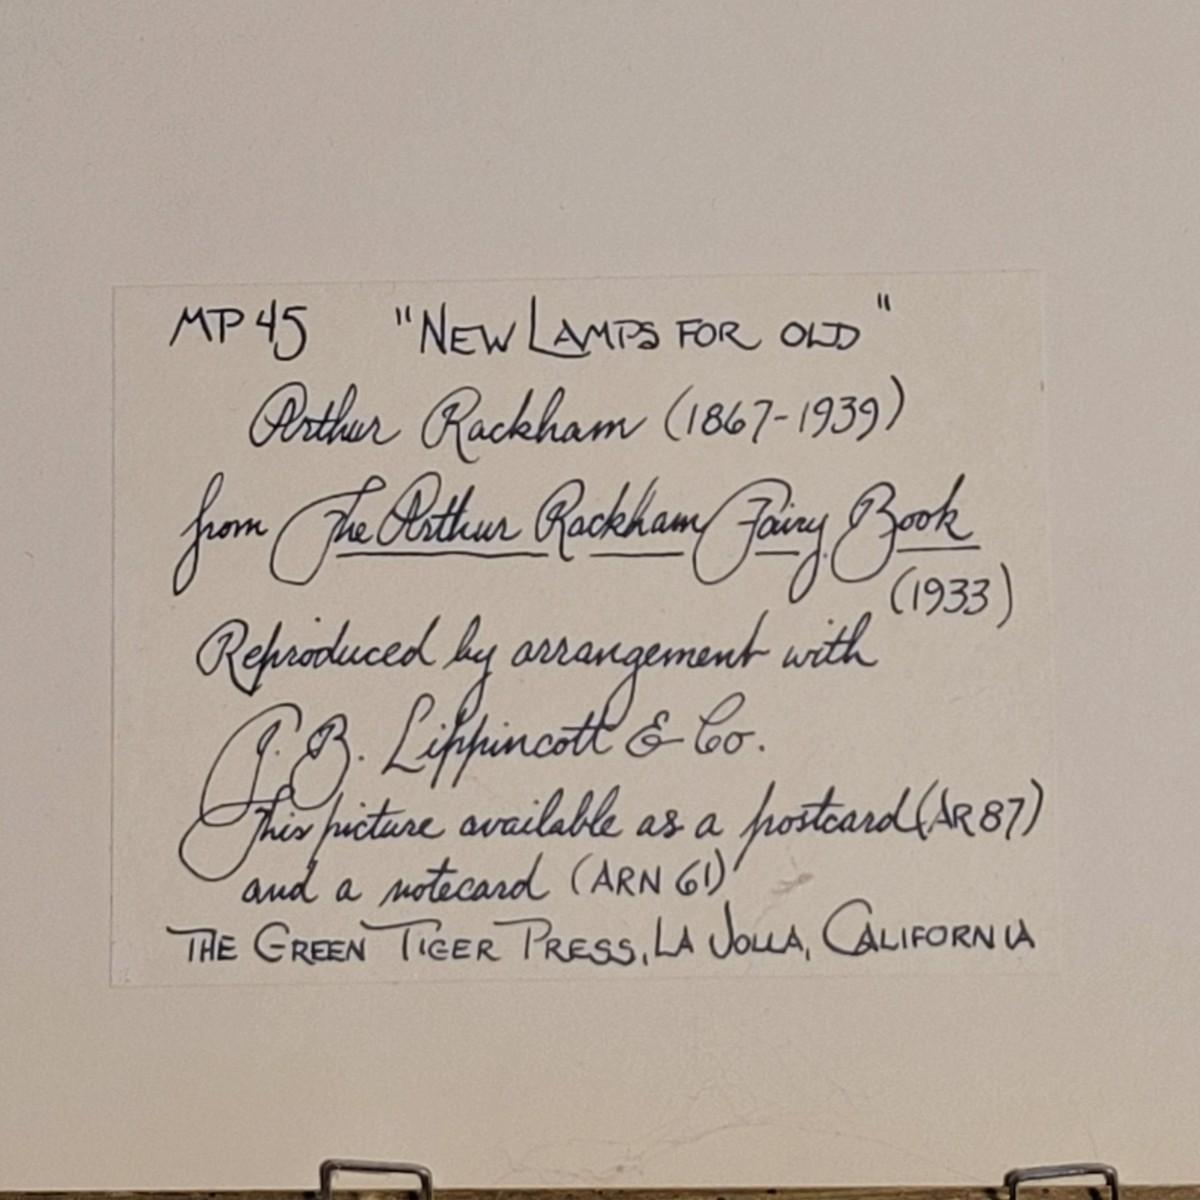 MP 45 "NEW LAMPS FOR OLD"
Arthur Rackham (1867-1939)
from The Arthur Rackham Fairy Book
(1933)
Reproduced by arrangement with
J. B. Lippincott & Co.
This picture available as a postcard (AR 87)
and a notecard (ARN 61)
THE GREEN TIGER PRESS, LA JOLLA, CALIFORNIA